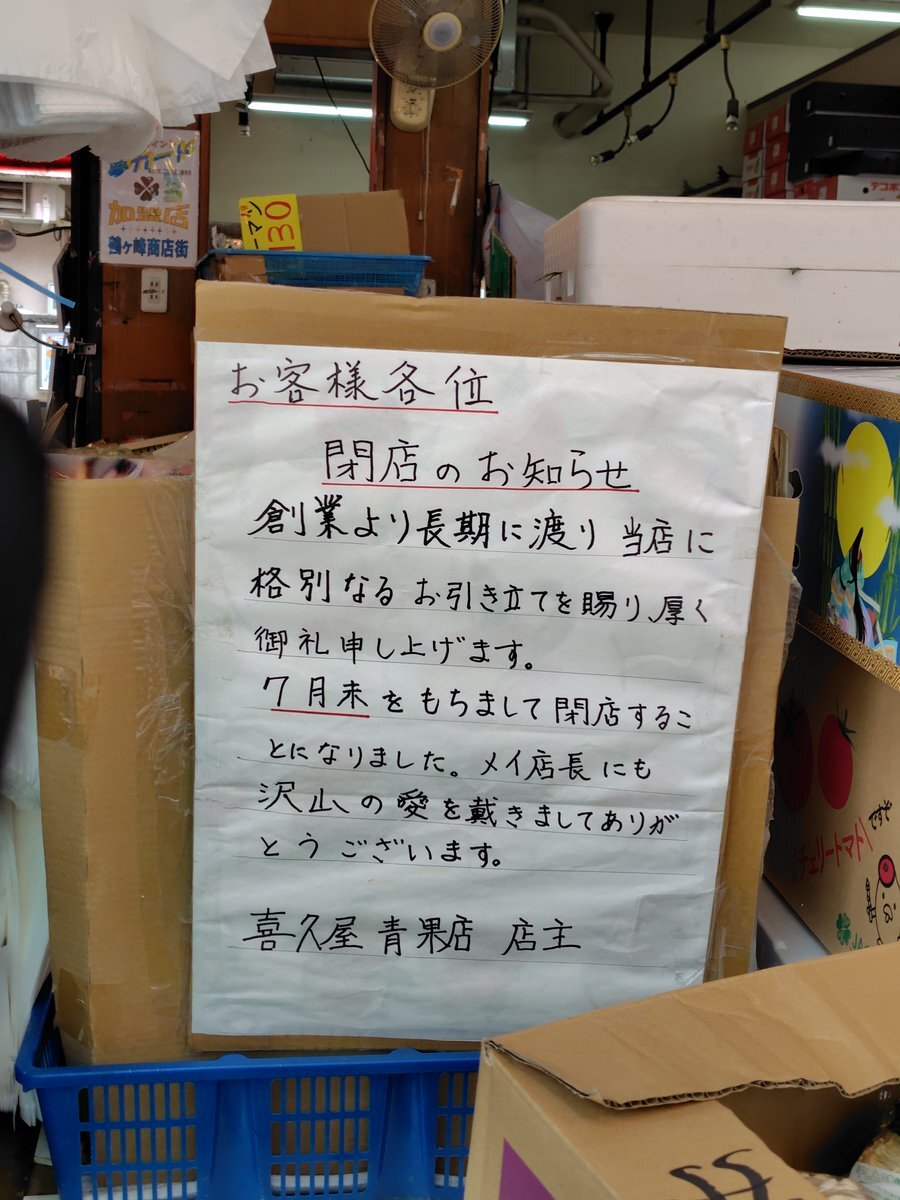 カード
加盟店
鶴ヶ峰商店街
ーマン
130
デコポ
お客様各位
閉店のお知らせ
創業より長期に渡り当店に
格別なるお引き立てを賜り、厚く
御礼申し上げます。
7月末をもちまして閉店するこ
とになりました。メイ店長にも
沢山の愛を戴きましてありが
とうございます。
喜久屋青果店 店主
チェリートマト